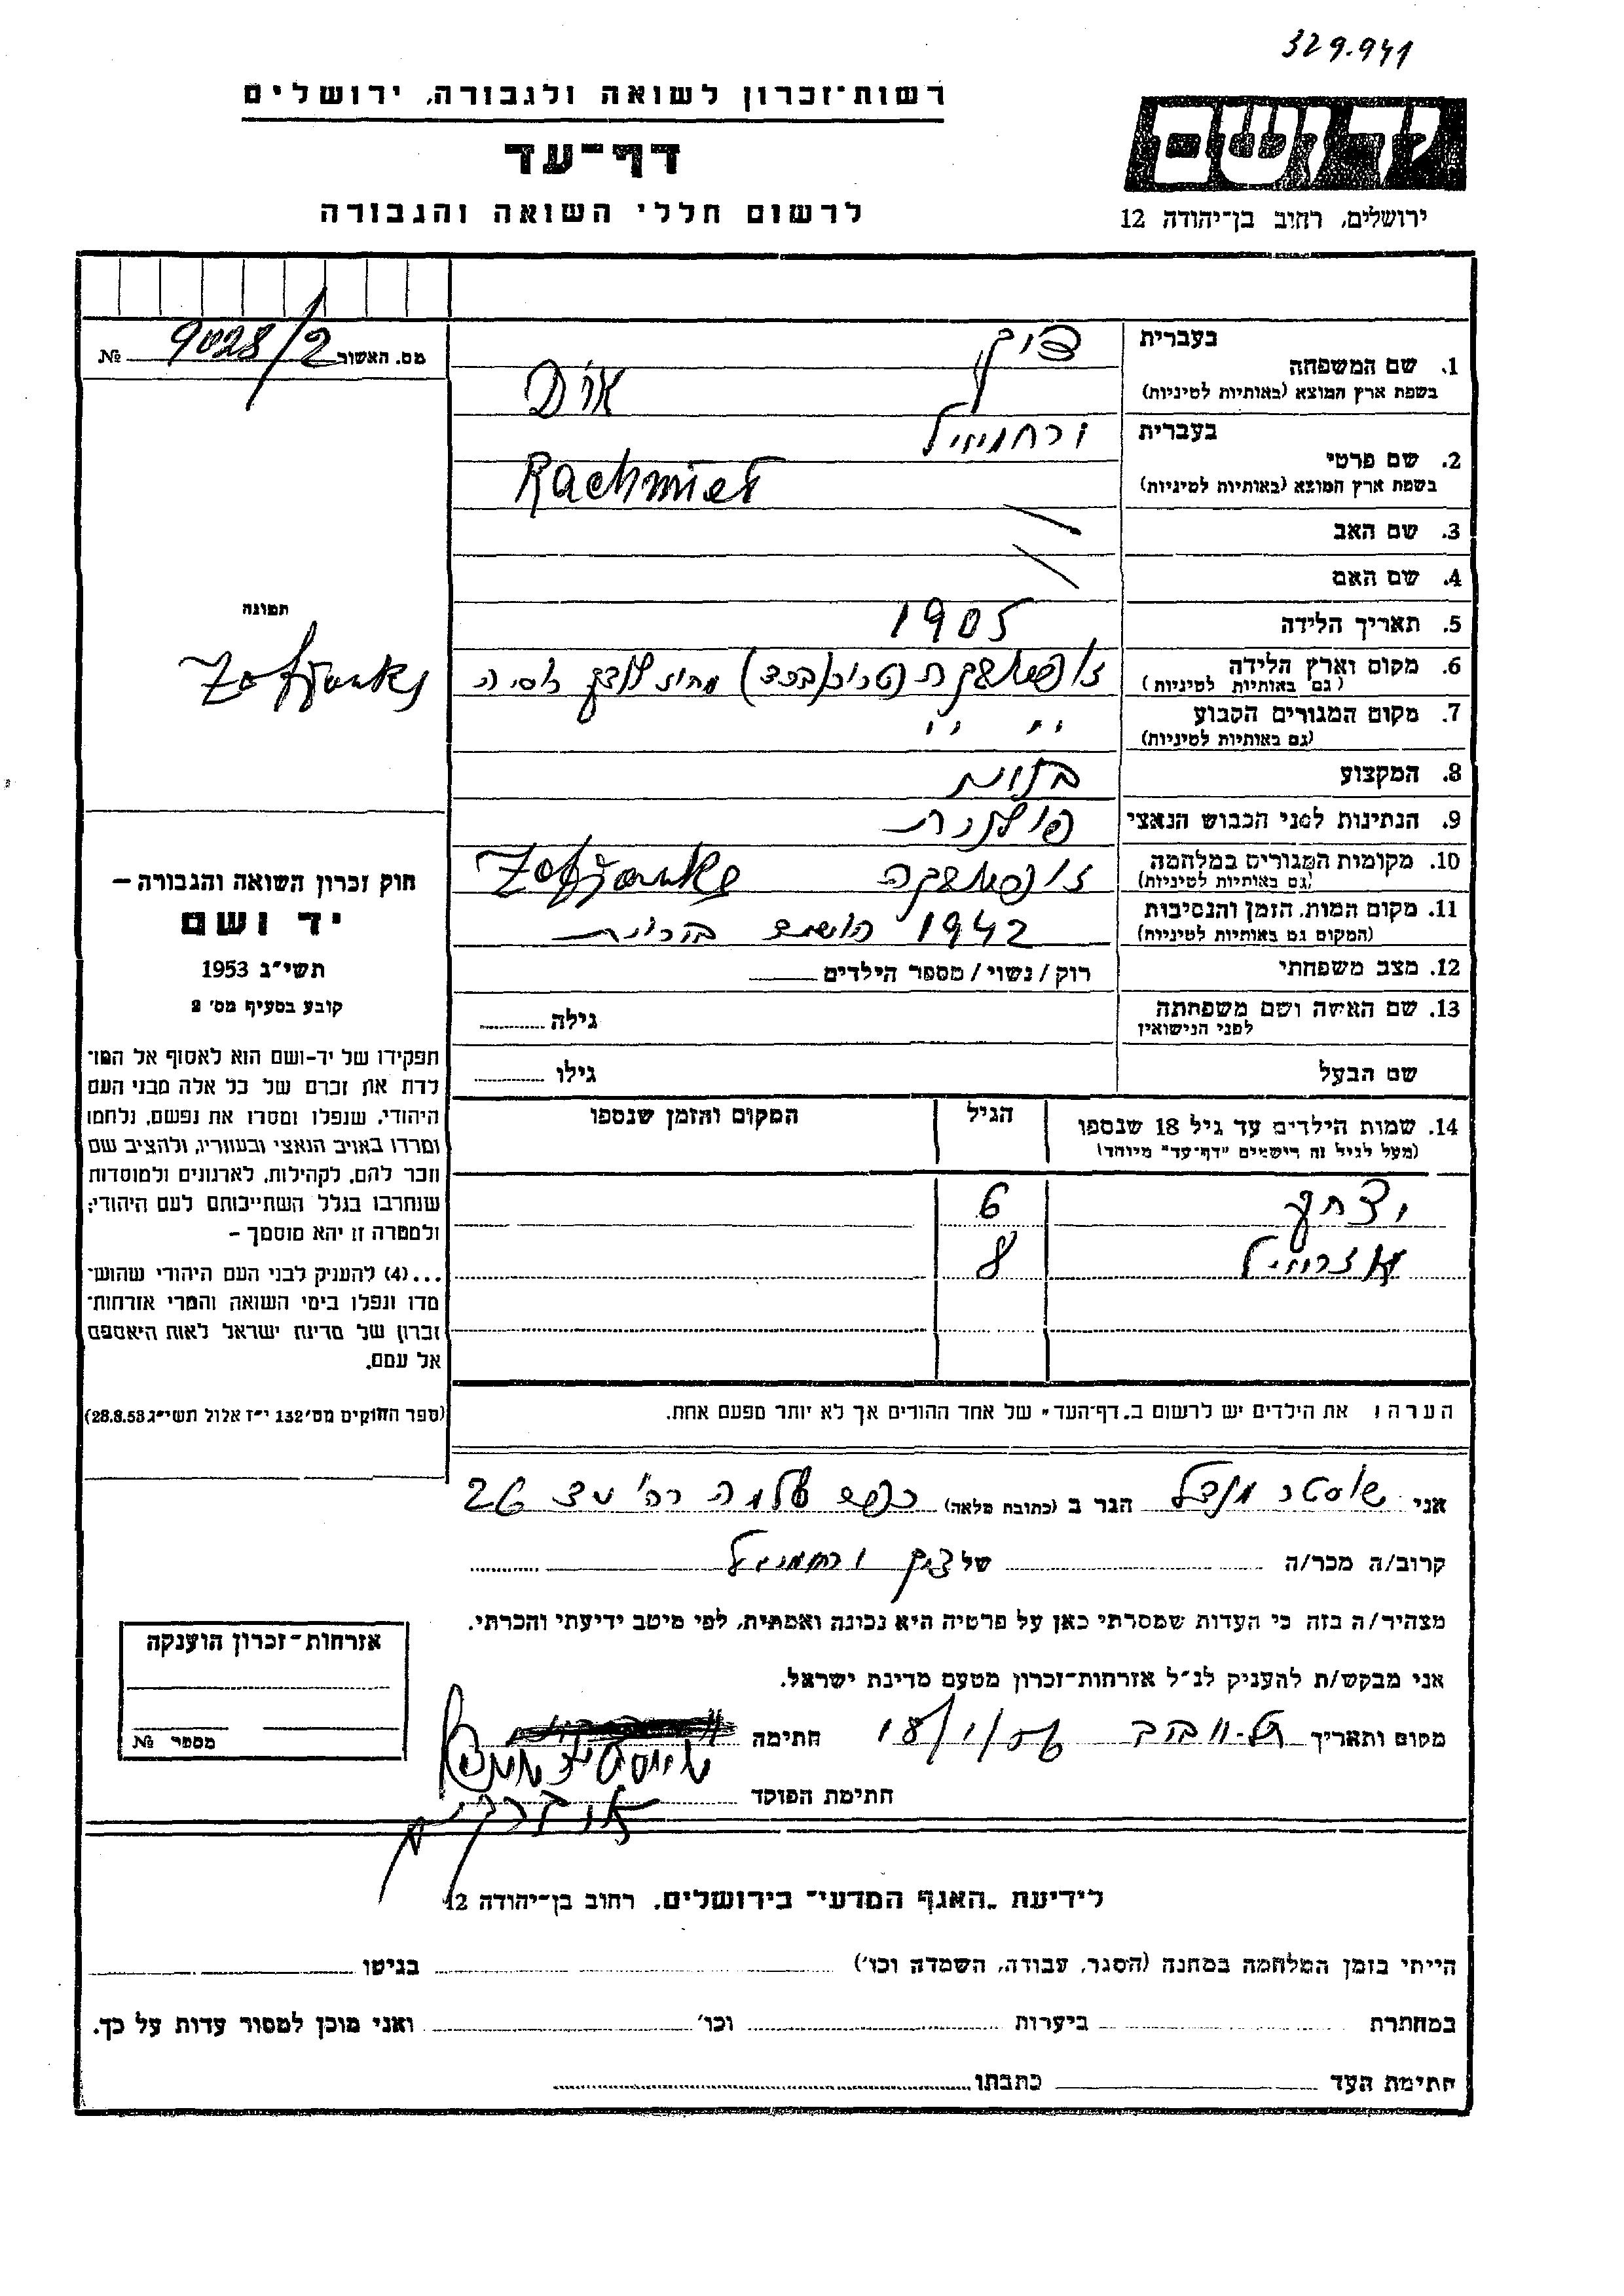 329.941
רשות־זכרון לשואה ולגבורה, ירושלים
דף־עד
לרשום חללי השואה והגבורה
ידושם
ירושלים, רחוב בן־יהודה 12
מס. האשור 9028/2 №
בעברית
1. שם המשפחה
בשפת ארץ המוצא (באותיות לטיניות)
בעברית ירחמיאל
2. שם פרטי
בשפת ארץ המוצא (באותיות לטיניות) Rachmiel
3. שם האב
4. שם האם
5. תאריך הלידה 1905
6. מקום וארץ הלידה
(גם באותיות לטיניות)
7. מקום המגורים הקבוע " "
(גם באותיות לטיניות)
8. המקצוע
9. הנתינות לפני הכבוש הנאצי פולנית
10. מקומות המגורים במלחמה
(גם באותיות לטיניות)
11. מקום המות, הזמן והנסיבות 1942
(המקום גם באותיות לטיניות)
12. מצב משפחתי רוק/נשוי/מספר הילדים
13. שם האשה ושם משפחתה גילה
לפני הנישואין
שם הבעל גילו
14. שמות הילדים עד גיל 18 שנספו הגיל המקום והזמן שנספו
(מעל לגיל זה רישמים "דף־עד" מיוחד)
יצחק 6
עזריאל 8
תמונה
חוק זכרון השואה והגבורה –
יד ושם
תשי"ג 1953
קובע בסעיף מס' 2
תפקידו של יד-ושם הוא לאסוף אל המו־
לדת את זכרם של כל אלה מבני העם
היהודי, שנפלו ומסרו את נפשם, נלחמו
ומרדו באויב הנאצי ובעוזריו, ולהציב שם
וזכר להם, לקהילות, לארגונים ולמוסדות
שנחרבו בגלל השתייכותם לעם היהודי;
ולמטרה זו יהא מוסמך –
...(4) להעניק לבני העם היהודי שהוש־
מדו ונפלו בימי השואה והמרי אזרחות־
זכרון של מדינת ישראל לאות היאספם
אל עמם.
(ספר החוקים מס' 132 י"ז אלול תשי"ג 28.8.53)
הערה: את הילדים יש לרשום ב"דף־העד" של אחד ההורים אך לא יותר מפעם אחת.
אני הגר ב (כתובת מלאה) 26
קרוב/ה מכר/ה של ירחמיאל
מצהיר/ה בזה כי העדות שמסרתי כאן על פרטיה היא נכונה ואמתית, לפי מיטב ידיעתי והכרתי.
אני מבקש/ת להעניק לנ"ל אזרחות־זכרון מטעם מדינת ישראל.
מקום ותאריך תל-אביב 18/1/56 חתימה
חתימת הפוקד
אזרחות־זכרון הוענקה
מספר №
לידיעת "האגף המדעי" בירושלים, רחוב בן־יהודה 12
הייתי בזמן המלחמה במחנה (הסגר, עבודה, השמדה וכו') בגיטו
במחתרת ביערות וכו' ואני מוכן למסור עדות על כך.
חתימת העד כתבתו